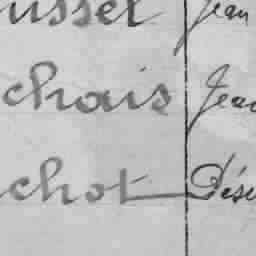 usset Jean
chais Jean
chot Dési